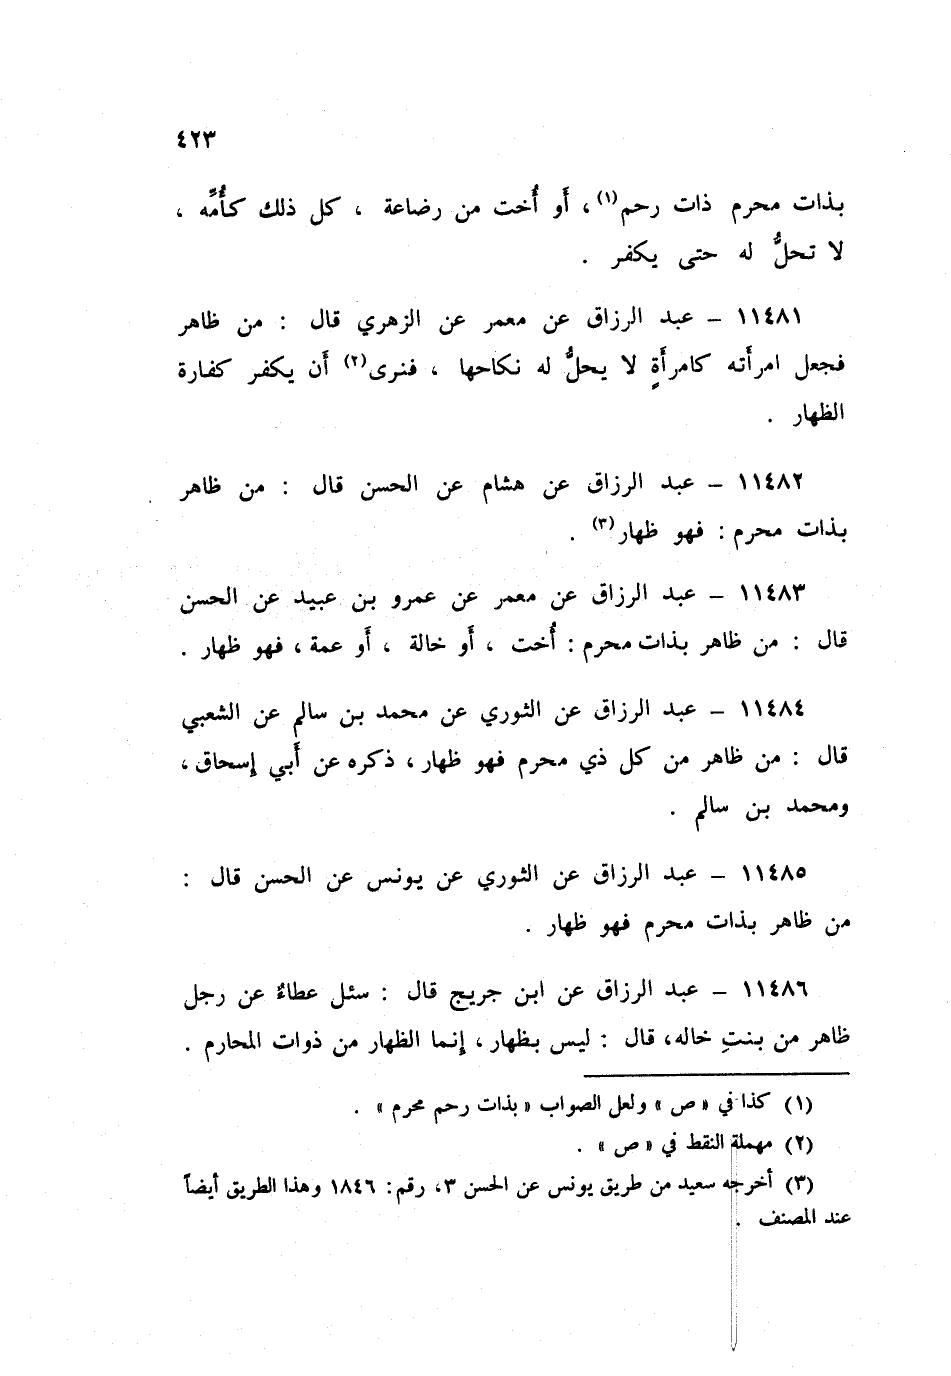 ٤٢٣
بذات محرم ذات رحم(١)، أَو أُخت من رضاعة ، كل ذلك كأُمِّه ،
لا تحلُّ له حتى يكفر .
١١٤٨١ – عبد الرزاق عن معمر عن الزهري قال : من ظاهر
فجعل امرأَته كامرأَةٍ لا يحلُّ له نكاحها ، فنرى(٢) أَن يكفر كفارة
الظهار .
١١٤٨٢ – عبد الرزاق عن هشام عن الحسن قال : من ظاهر
بذات محرم : فهو ظهار(٣) .
١١٤٨٣ – عبد الرزاق عن معمر عن عمرو بن عبيد عن الحسن
قال : من ظاهر بذات محرم : أُخت ، أَو خالة ، أَو عمة ، فهو ظهار .
١١٤٨٤ – عبد الرزاق عن الثوري عن محمد بن سالم عن الشعبي
قال : من ظاهر من كل ذي محرم فهو ظهار ، ذكره عن أَبي إِسحاق ،
ومحمد بن سالم .
١١٤٨٥ – عبد الرزاق عن الثوري عن يونس عن الحسن قال :
من ظاهر بذات محرم فهو ظهار .
١١٤٨٦ – عبد الرزاق عن ابن جريج قال : سئل عطاءٌ عن رجل
ظاهر من بنتِ خاله، قال : ليس بظهار ، إِنما الظهار من ذوات المحارم .
(١) كذا في « ص » ولعل الصواب « بذات رحم محرم » .
(٢) مهملة النقط في « ص » .
(٣) أخرجه سعيد من طريق يونس عن الحسن ٣، رقم : ١٨٤٦ وهذا الطريق أيضاً
عند المصنف .